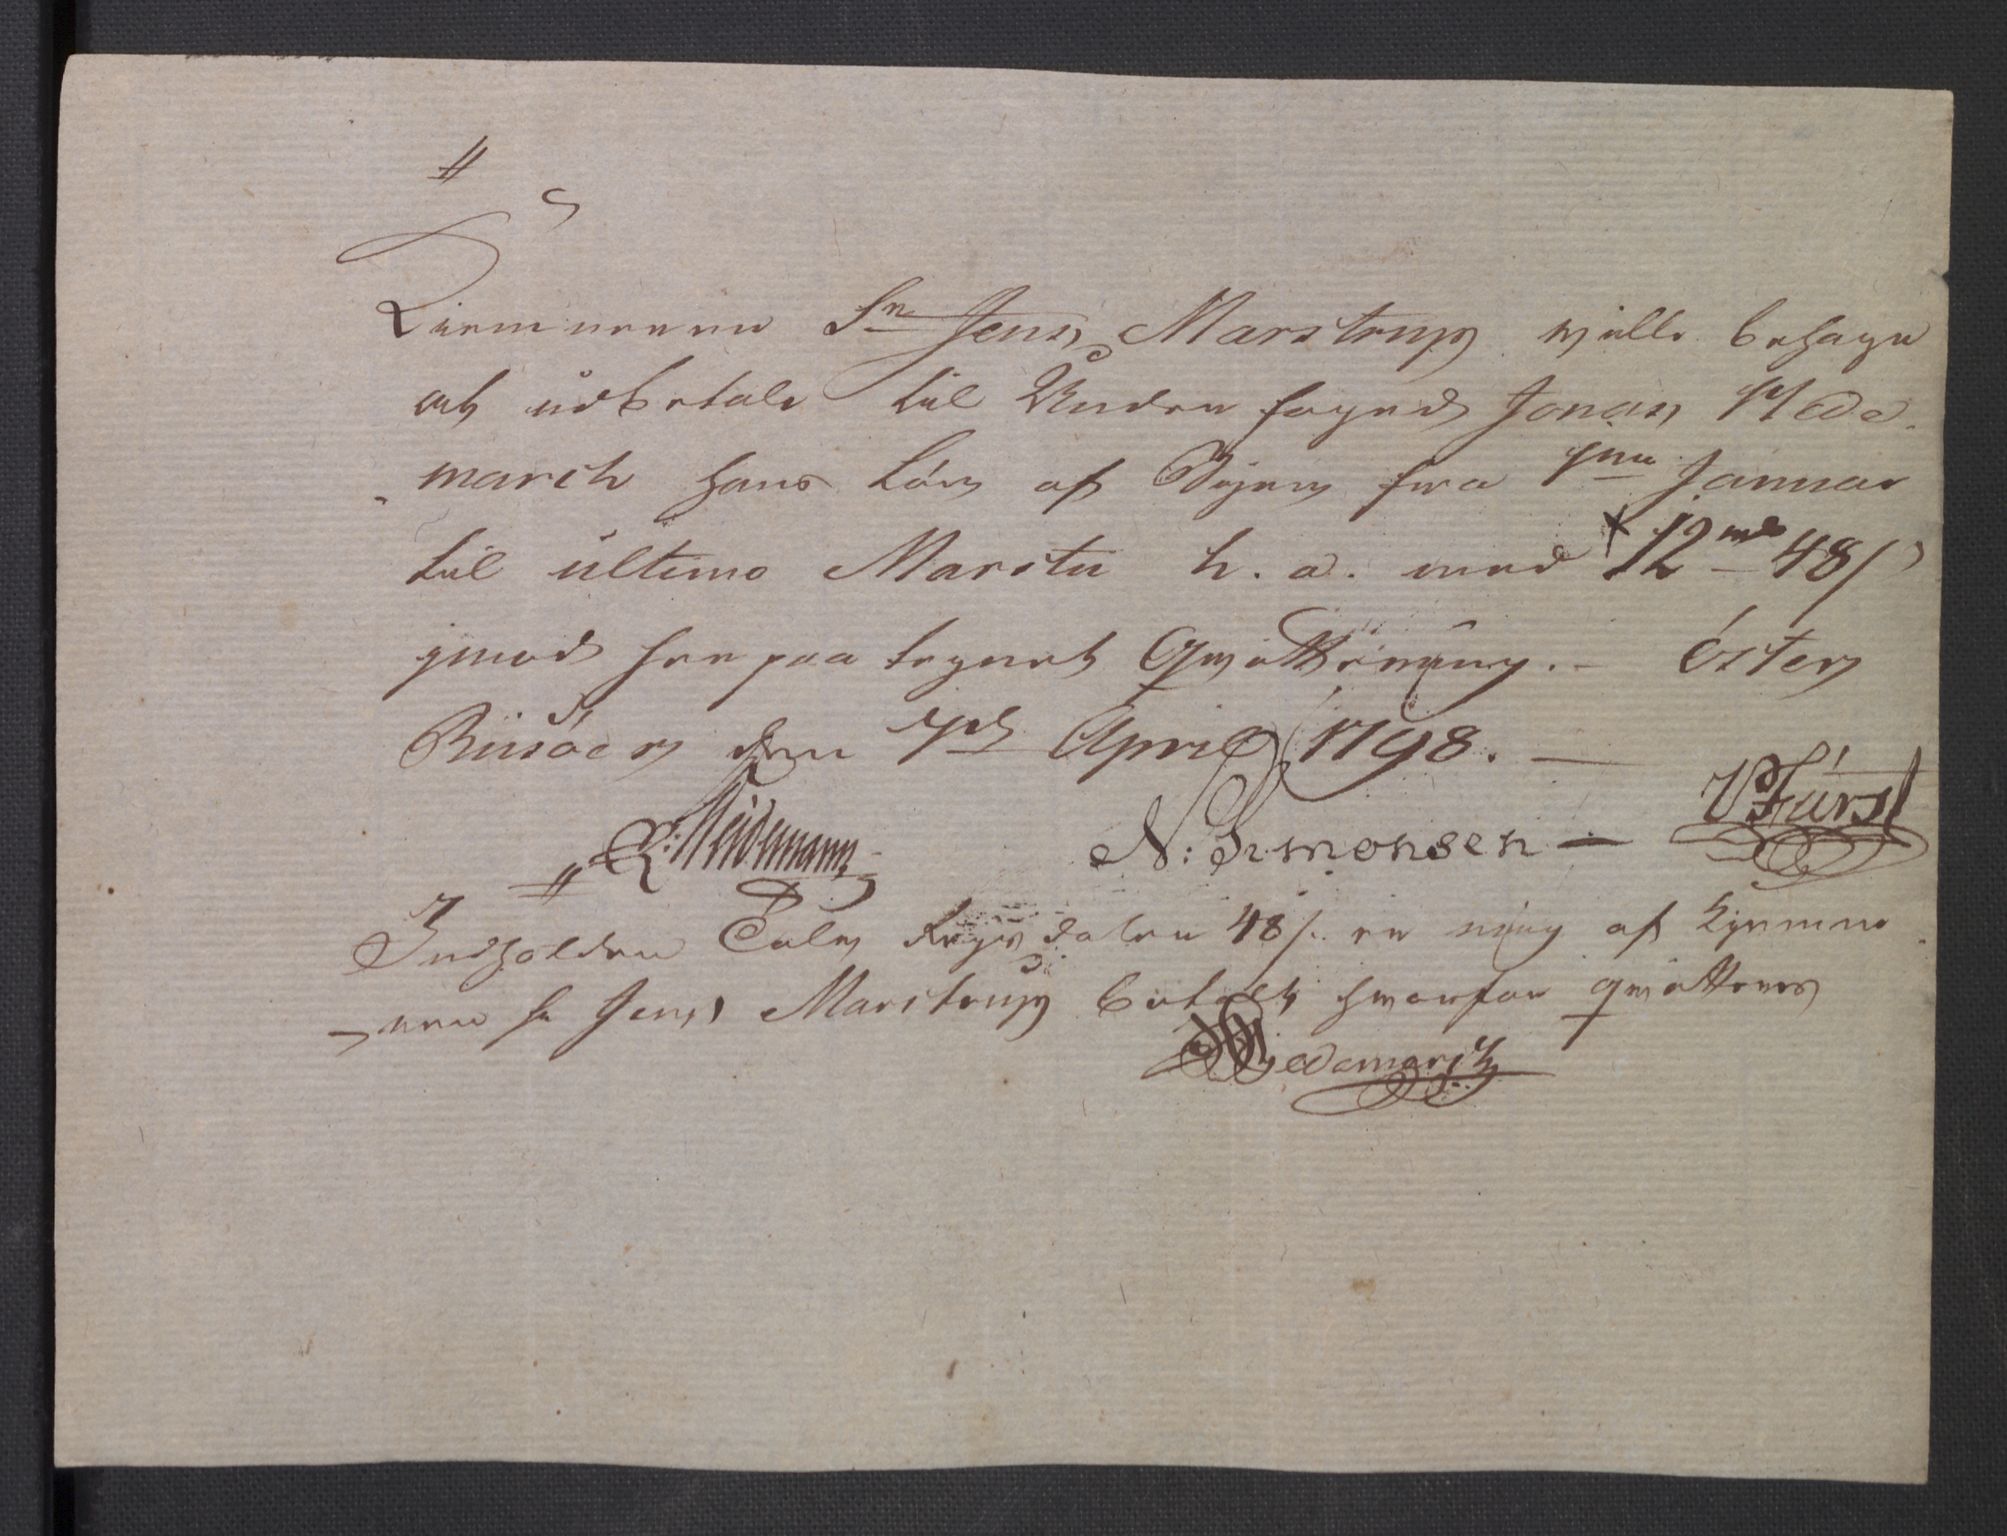 Kiemneren Sr. Jens Marstrup ville behage
at udbetale til Underfoged Jonas Hede-
march hans Løn af Byen fra 1ma Januar
til ultimo Martii h. a. med 12 48 s
imod herpaa tegnet Qvittering. – Øster
Riisøer den 7de April 1798. –
Weidemann N: Simonsen – Fürst
Indholdte Tolv Rigsdaler 48 s. er mig af Kjemne-
ren Sr Jens Marstrup betalt hvorfor qvitteres
Hedemarch